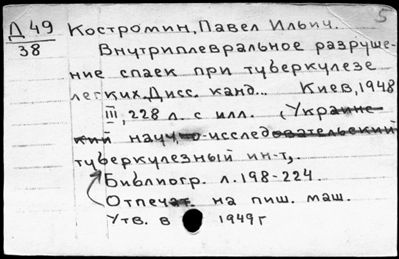 5
Д 49 Костромин, Павел Ильич.
38 Внутриплевральное разруше-
ние спаек при туберкулезе
легких. Дисс. канд... Киев, 1948
III, 228 л. с илл. (Украинс-
кий науч.-о-исследовательский
туберкулезный ин-т).
Библиогр. л. 198-224.
Отпечат. на пиш. маш.
Утв. в 1949 г